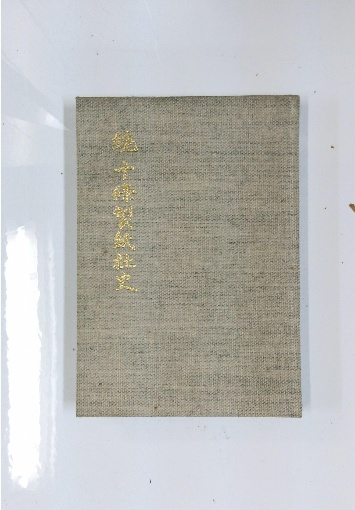 続 十條製紙社史